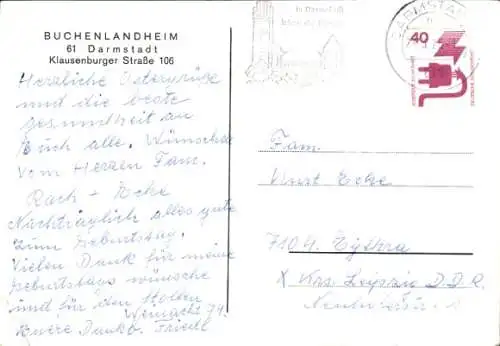 BUCHENLANDHEIM
61 Darmstadt
Klausenburger Straße 106
Herzliche Ostergrüße
und die beste
gesundheit an
Euch alle. Wünschen
vom Herzen Fam.
Rach + Ecke
Nachträglich alles gute
zum Geburtstag.
Vielen Dank für meine
Geburtstags wünsche
und für den Stollen
Weinacht 74.
Euere Dankb. Friedl
in Darmstadt
leben die Künste
DARMSTADT
40
Fam.
Ernst Ecke
7104 Eythra
Krs. Leipzig D.D.R.